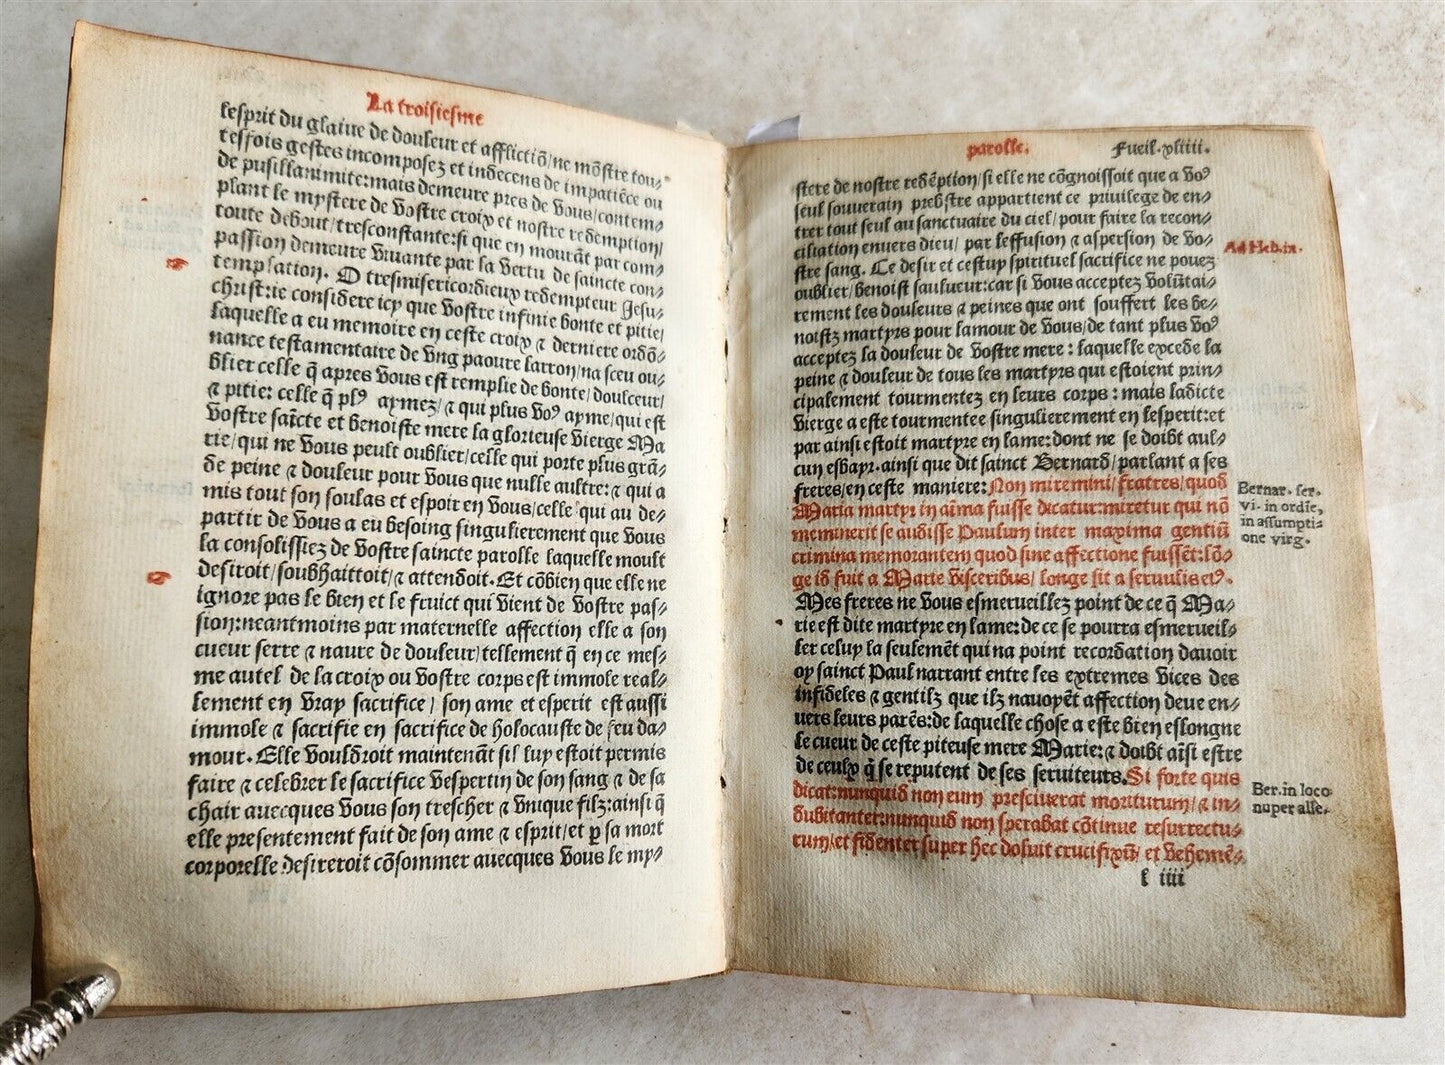 La troisiesme
lesprit du glaiue de douleur et afflictiõ/ne mõstre tou⸗
tesfois gestes incomposez et indecens de impatiẽce ou
de pusillanimite:mais demeure pres de vous/contem⸗
plant le mystere de vostre croix et nostre redemption/
toute debout/tresconstante:si que en mourãt par com⸗
passion demeure viuante par la vertu de saincte con⸗
templation. O tresmisericordieux redempteur Jesu⸗
christ:ie considere icy que vostre infinie bonte et pitie/
laquelle a eu memoire en ceste croix ⁊ derniere ordõ⸗
nance testamentaire de vng paoure larron/na sceu ou⸗
blier celle q̃ apres vous est remplie de bonte/doulceur/
⁊ pitie: celle q̃ plꝰ aymez/⁊ qui plus voꝰ ayme/qui est
vostre saĩcte et benoiste mere la glorieuse vierge Ma
rie/qui ne vous peult oublier/celle qui porte plus grã⸗
de peine ⁊ douleur pour vous que nulle aultre:⁊ qui a
mis tout son soulas et espoir en vous/celle qui au de⸗
partir de vous a eu besoing singulierement que vous
la consolissiez de vostre saincte parolle laquelle moult
desiroit/soubhaittoit/⁊ attendoit. Et cõbien que elle ne
ignore pas le bien et le fruict qui vient de vostre pas⸗
sion:neantmoins par maternelle affection elle a son
cueur serre ⁊ naure de douleur/tellement q̃ en ce mes⸗
me autel de la croix ou vostre corps est immole real⸗
lement en vray sacrifice/ son ame et esperit est aussi
immole ⁊ sacrifie en sacrifice de holocauste de feu da⸗
mour. Elle vouldroit maintenãt sil luy estoit permis
faire ⁊ celebrer le sacrifice vespertin de son sang ⁊ de sa
chair auecques vous son trescher ⁊ vnique filz:ainsi q̃
elle presentement fait de son ame ⁊ esprit/et ꝑ sa mort
corporelle desireroit cõsommer auecques vous le my⸗
parolle. Fueil.xliiii.
stere de nostre redẽption/si elle ne cõgnoissoit que a voꝰ
seul souuerain prebstre appartient ce priuilege de en⸗
trer tout seul au sanctuaire du ciel/pour faire la recon⸗
ciliation enuers dieu/ par leffusion ⁊ aspersion de vo⸗
Ad Heb.ix.
stre sang. Ce desir et cestuy spirituel sacrifice ne pouez
oublier/benoist saulueur:car si vous acceptez volũtai⸗
rement les douleurs ⁊ peines que ont souffert les be⸗
noistz martyrs pour lamour de vous/de tant plus voꝰ
acceptez la douleur de vostre mere: laquelle excede la
peine ⁊ douleur de tous les martyrs qui estoient prin⸗
cipalement tourmentez en leurs corps: mais ladicte
vierge a este tourmentee singulierement en lesperit:et
par ainsi estoit martyre en lame:dont ne se doibt aul⸗
cun esbayr.ainsi que dit sainct Bernard/parlant a ses
freres/en ceste maniere:Non miremini/fratres/quod
Maria martyr in aĩma fuisse dicatur:miretur qui nõ
meminerit se audisse Paulum inter maxima gentiũ
crimina memorantem quod sine affectione fuissẽt:lõ⸗
ge id fuit a Marie visceribus/ longe sit a seruulis eiꝰ.
Bernar. ser.
vi. in ordĩe,
in assumpti⸗
one virg.
Mes freres ne vous esmerueillez point de ce q̃ Ma⸗
rie est dite martyre en lame:de ce se pourra esmerueil⸗
ler celuy la seulemẽt qui na point recordation dauoir
oy sainct Paul narrant entre les extremes vices des
infideles ⁊ gentilz que ilz nauoyẽt affection deue en⸗
uers leurs parẽs:de laquelle chose a este bien eslongne
le cueur de ceste piteuse mere Marie:⁊ doibt aĩsi estre
de ceulx q̃ se reputent de ses seruiteurs.Si forte quis
dicat:nunquid non eum presciuerat moriturum/⁊ in⸗
dubitanter:nunquid non sperabat cõtinue resurrectu⸗
rum/et fidenter super hec doluit crucifixũ/ et vehemẽ⸗
Ber.in loco
nuper alle.
l iiii